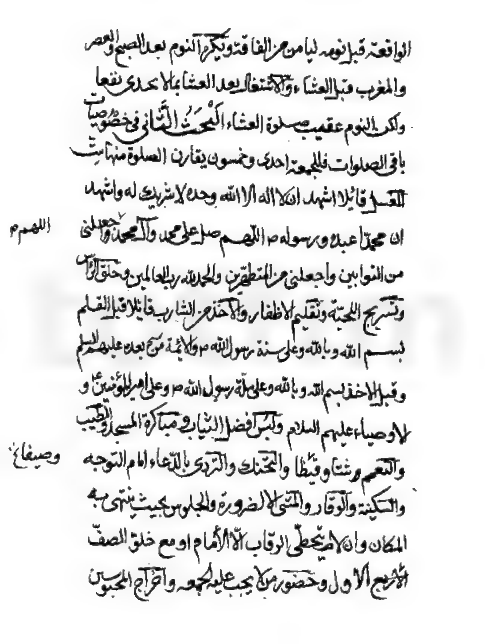 الواقعة قبل نومه ليامن من الفاقة ويكره النوم بعد الصبح والعصر
والمغرب قبل العشاء والاشتغال بعد العشا بما لا يجدى نفعا
وليكن النوم عقيب صلوة العشاء البحث الثاني في خصوصيات
باقى الصلوات فللجمعة احدى وخمسون يقارن الصلوة منها ست
الغسل قائلا اشهد ان لا اله الا الله وحده لا شريك له واشهد
ان محمدا عبده ورسوله اللهم صل على محمد وآل محمد واجعلنى
اللهم
من التوابين واجعلنى من المتطهرين والحمد لله رب العالمين وحلق الراس
وتسريح اللحية وتقليم الاظفار والاخذ من الشارب قائلا قبل القلم
بسم الله وبالله وعلى سنة رسول الله ص والائمة من بعده عليهم السلم
وقبل الاخذ بسم الله وبالله وعلى ملة رسول الله ص وعلى امير المؤمنين و
لاوصياء عليهم السلام ولبس افضل الثياب ومباكرة المسجد والطيب
والتعمم شتا وقيظا والتحنك والتردى بالدعاء امام التوجه
وصيفا
والسكينة والوقار والمشى الا لضرورة والجلوس بحيث ينتهى به
المكان وان لا يتخطى الرقاب الا الامام او مع خلو الصف
الاول وحضور من لا يجب عليه الجمعه واخراج المحبوسين